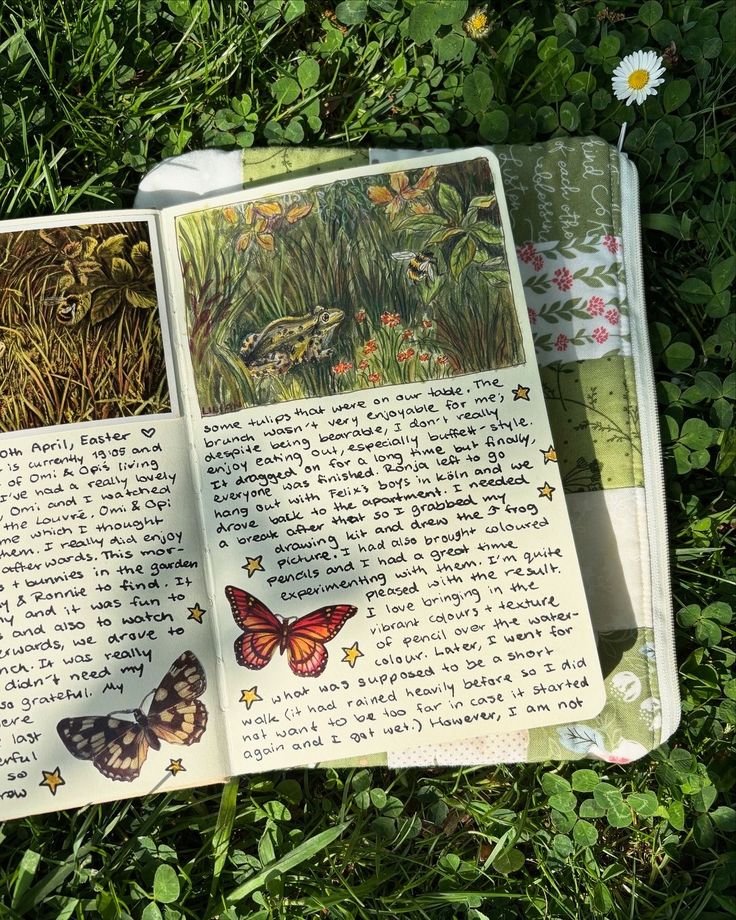 0th April, Easter ♡
is currently 19:05 and
of Omi & Opi's living
I've had a really lovely
Omi and I watched
the Louvre. Omi & Opi
me which I thought
them. I really did enjoy
afterwards. This mor-
t bunnies in the garden
y & Ronnie to find. It
ny and it was fun to
s and also to watch
erwards, we drove to
nch. It was really
didn't need my
so grateful. My
ere
last
erful
so
row
some tulips that were on our table. The
brunch wasn't very enjoyable for me;
despite being bearable, I don't really
enjoy eating out, especially buffett-style.
It dragged on for a long time but finally,
everyone was finished. Ronja left to go
hang out with Felix's boys in Köln and we
drove back to the apartment. I needed
a break after that so I grabbed my
drawing kit and drew the ↑ frog
picture. I had also brought coloured
pencils and I had a great time
experimenting with them. I'm quite
pleased with the result.
I love bringing in the
vibrant colours + texture
of pencil over the water-
colour. Later, I went for
what was supposed to be a short
walk (it had rained heavily before so I did
not want to be too far in case it started
again and I got wet.) However, I am not
kind
of each other
blessing